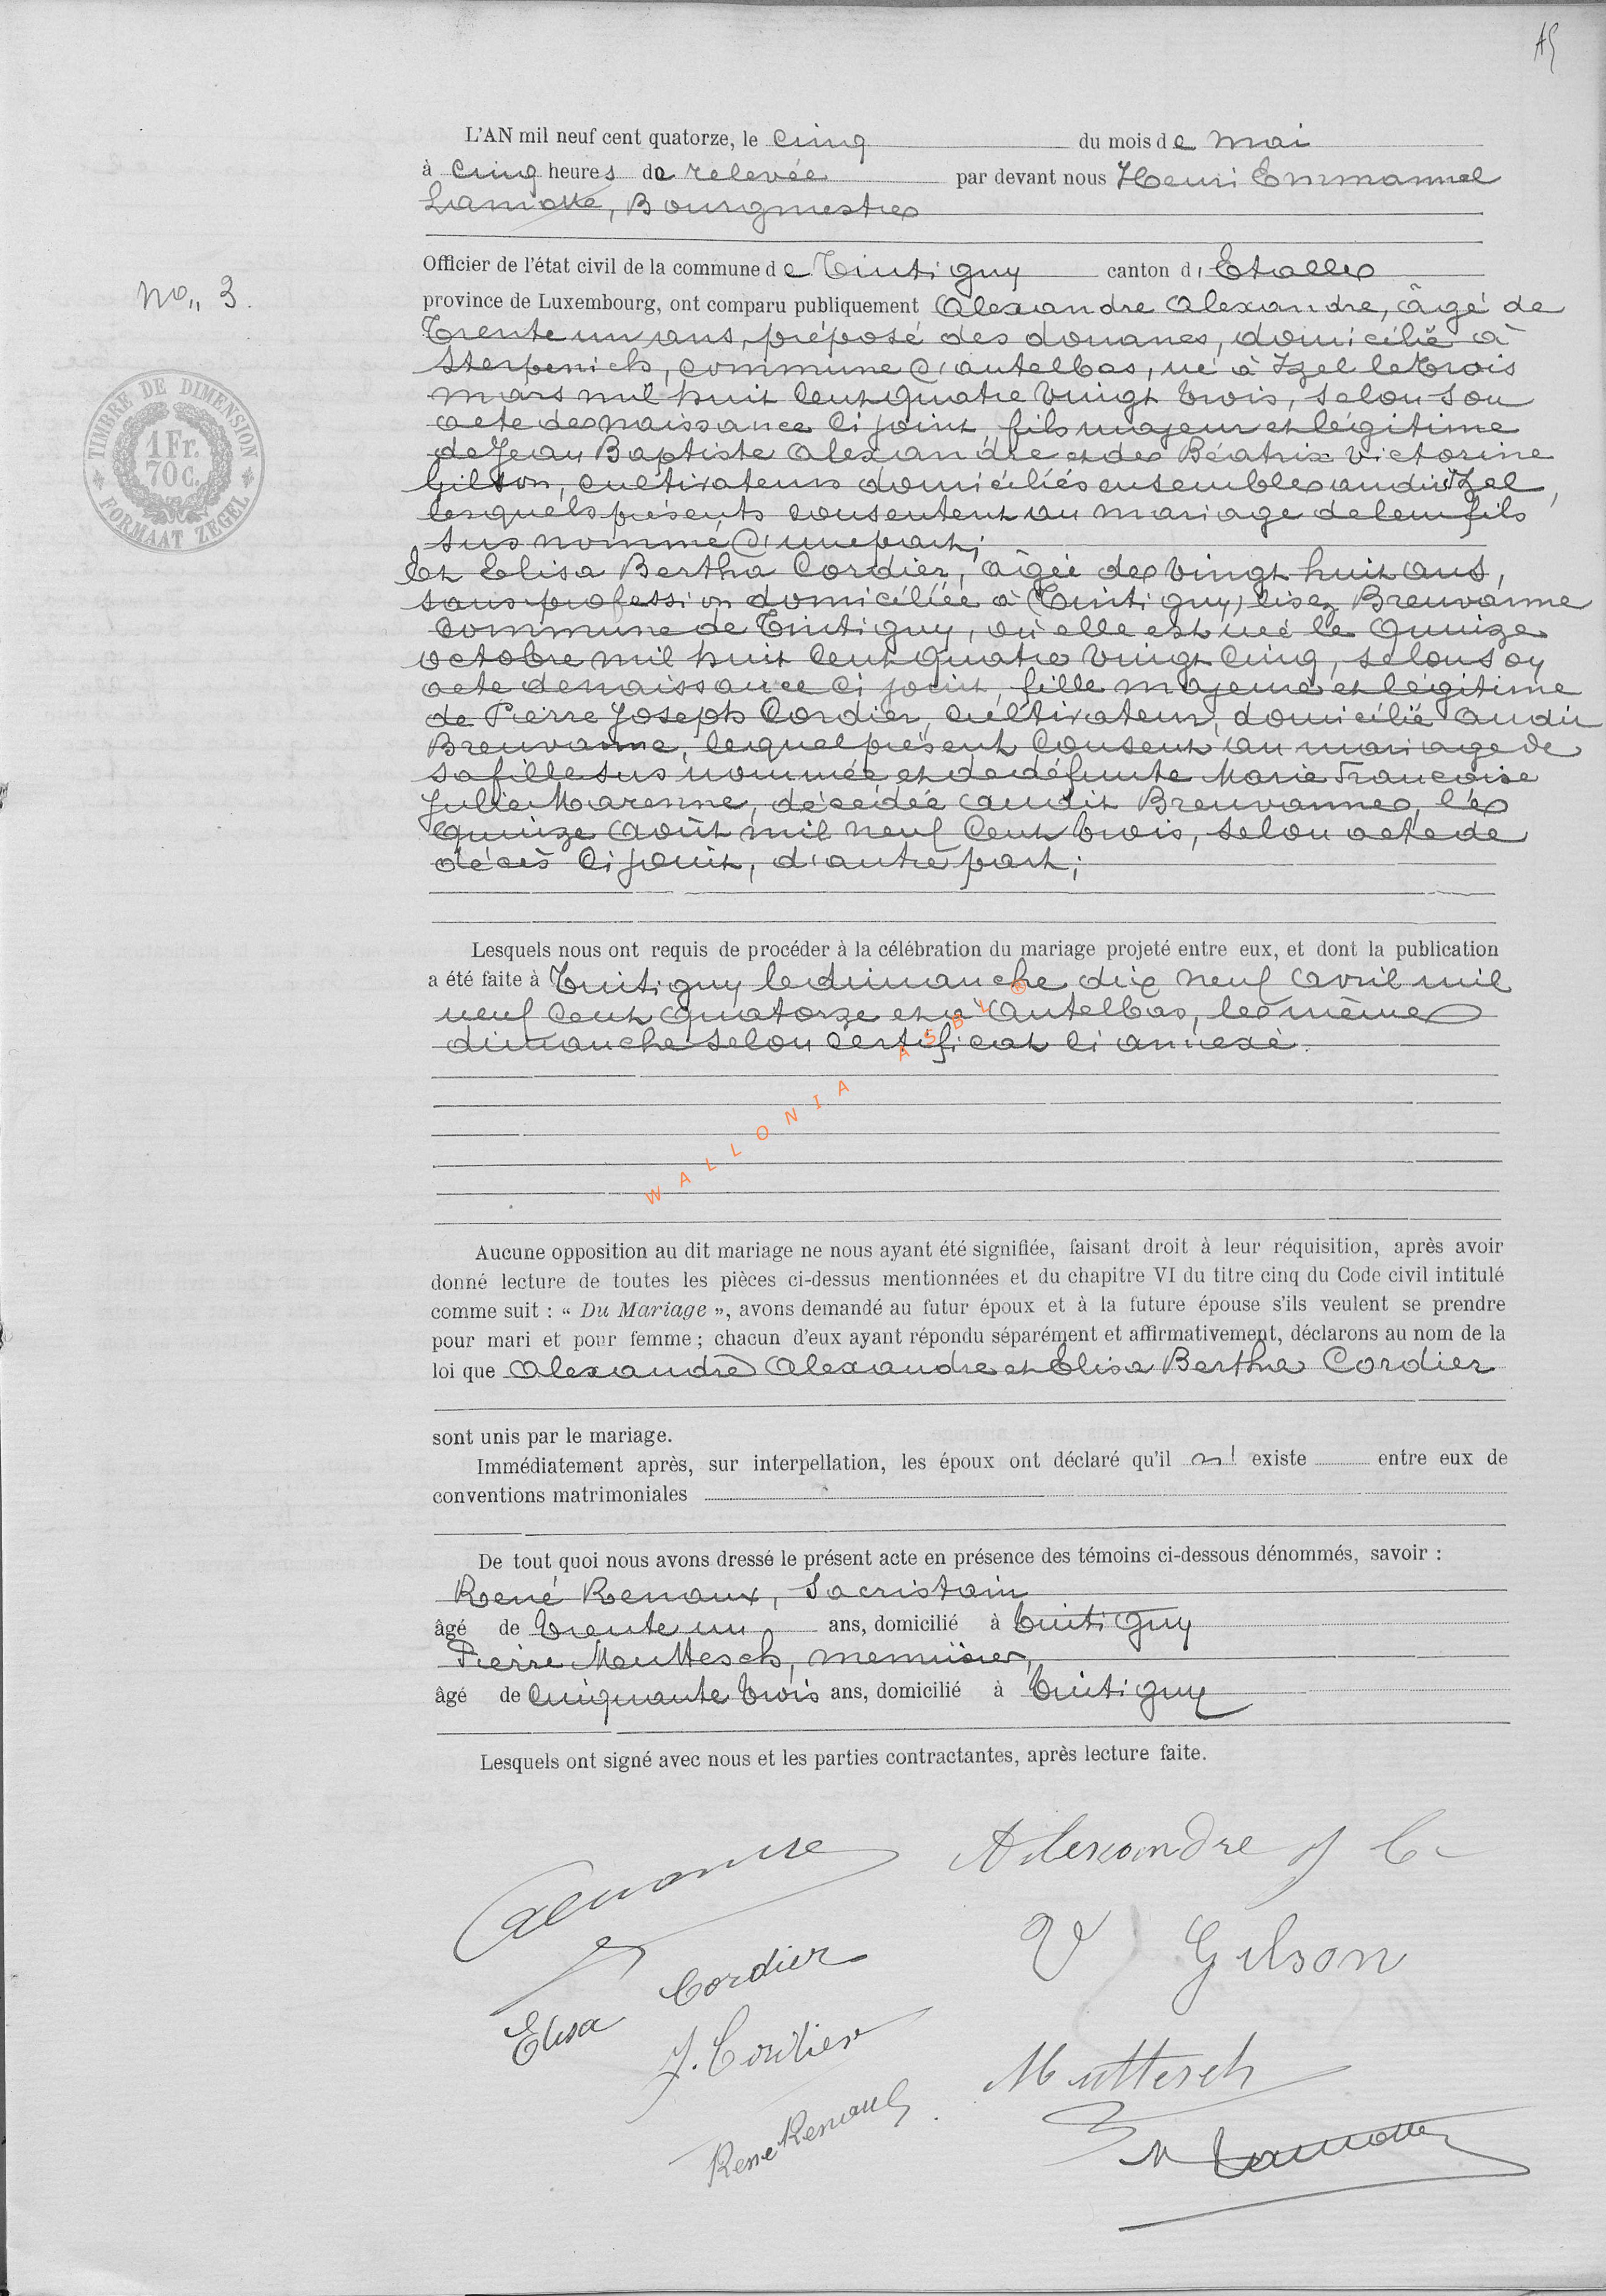 L'AN mil neuf cent quatorze, le cinq du mois de mai
à cinq heures de relevée par devant nous Henri Emmanuel
Lamotte, Bourgmestre
Officier de l'état civil de la commune de Tintigny canton d'Etalle
No 3.
province de Luxembourg, ont comparu publiquement Alexandre Alexandre, âgé de
trente un ans, préposé des douanes, domicilié à
Sterpenich, commune d'Autelbas, né à Izel le trois
mars mil huit cent quatre vingt trois, selon son
acte de naissance ci joint, fils majeur et légitime
de Jean Baptiste Alexandre et de Béatrix Victorine
Gilson, cultivateurs domiciliés ensemble audit Izel,
lesquels présents consentent au mariage de leur fils
sus nommé d'une part;
Et Elisa Bertha Cordier, âgée de vingt huit ans,
sans profession domiciliée à (Tintigny) lisez Breuvanne
commune de Tintigny, où elle est née le quinze
octobre mil huit cent quatre vingt cinq, selon son
acte de naissance ci joint, fille majeure et légitime
de Pierre Joseph Cordier, cultivateur, domicilié audit
Breuvanne, lequel présent consent au mariage de
sa fille sus nommée et de défunte Marie Françoise
Julie Marenne, décédée audit Breuvanne, le
quinze août mil neuf cent trois, selon acte de
décès ci joint, d'autre part;
TIMBRE DE DIMENSION
1 Fr.
70 c.
FORMAAT ZEGEL
Lesquels nous ont requis de procéder à la célébration du mariage projeté entre eux, et dont la publication
a été faite à Tintigny le dimanche dix neuf avril mil
neuf cent quatorze et à Autelbas, le même
dimanche selon certificat ci annexé.
WALLONIA ASBL ®
Aucune opposition au dit mariage ne nous ayant été signifiée, faisant droit à leur réquisition, après avoir
donné lecture de toutes les pièces ci-dessus mentionnées et du chapitre VI du titre cinq du Code civil intitulé
comme suit : « Du Mariage », avons demandé au futur époux et à la future épouse s'ils veulent se prendre
pour mari et pour femme ; chacun d'eux ayant répondu séparément et affirmativement, déclarons au nom de la
loi que Alexandre Alexandre et Elisa Bertha Cordier
sont unis par le mariage.
Immédiatement après, sur interpellation, les époux ont déclaré qu'il n' existe entre eux de
conventions matrimoniales
De tout quoi nous avons dressé le présent acte en présence des témoins ci-dessous dénommés, savoir :
René Renaux, sacristain
âgé de trente un ans, domicilié à Tintigny
Pierre Muttesch, menuisier,
âgé de cinquante trois ans, domicilié à Tintigny
Lesquels ont signé avec nous et les parties contractantes, après lecture faite.
Alexandre J B
V Gilson
Elisa Cordier
J. Cordier
Muttesch
René Renaux
Lamotte